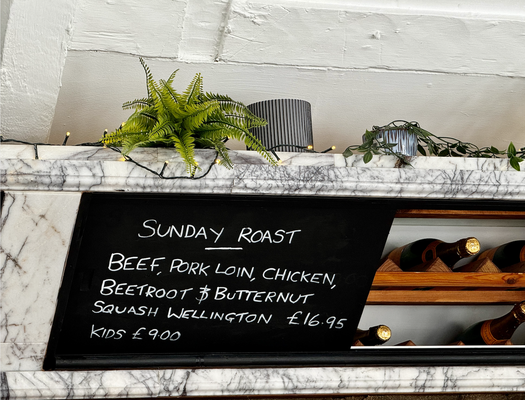 SUNDAY ROAST
BEEF, PORK LOIN, CHICKEN,
BEETROOT & BUTTERNUT
SQUASH WELLINGTON £16.95
KIDS £9.00